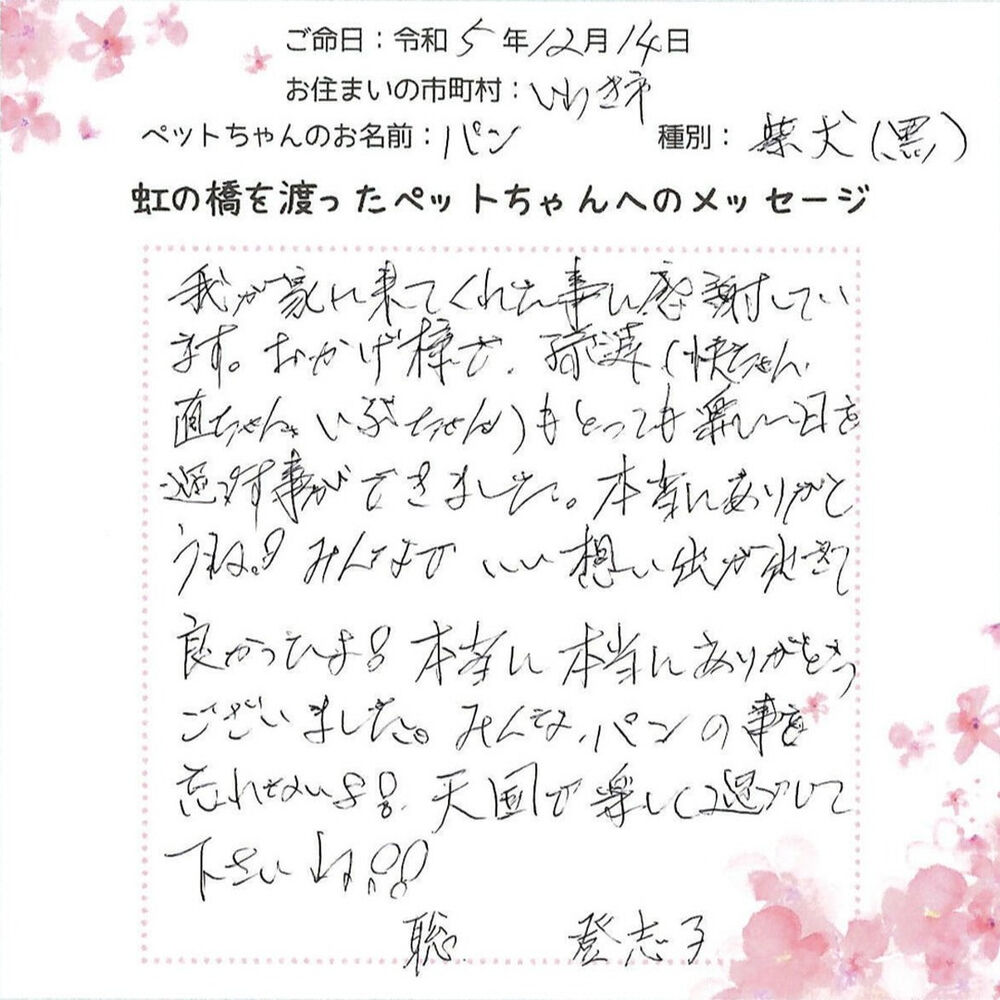 ご命日：令和5年12月14日
お住まいの市町村：いわき市
ペットちゃんのお名前：パン 種別：柴犬(黒)
虹の橋を渡ったペットちゃんへのメッセージ
我が家に来てくれた事に感謝してい
ます。おかげ様で、孫達(快ちゃん、
直ちゃん、いぶちゃん)もとっても楽しい日を
過ごす事ができました。本当にありがと
うね。!! みんなで いい想い出が出きて
良かったよ!! 本当に 本当にありがとう
ございました。みんな、パンの事を
忘れないよ!!、天国で楽しく過ごして
下さいね!!
聡 登志子